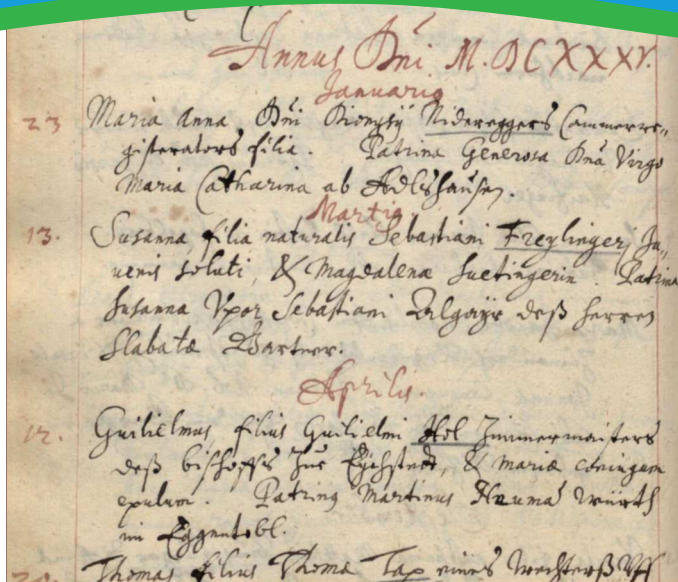 Annus Dni M. DCXXXV.
Januario
23 Maria Anna Dni Dionysÿ Nidereggers Cammerre„
gistrators filia. Patrina Generosa Dna Virgo
Maria Catharina ab Adlshausen.
Martio
13. Susanna filia naturalis Sebastiani Freylinger, Ju„
venis soluti, & Magdalenæ Patrina
Susanna Vxor Sebastiani deß Herren
Slabatæ
Aprilis.
12. Guilielmus, filius Guilielmi Hol Zimmermaisters
deß bischoffs zue Eychstedt, & Mariæ coniugum
Patrinus Martinus würth
in
Thomas filius Thomæ Tax eines